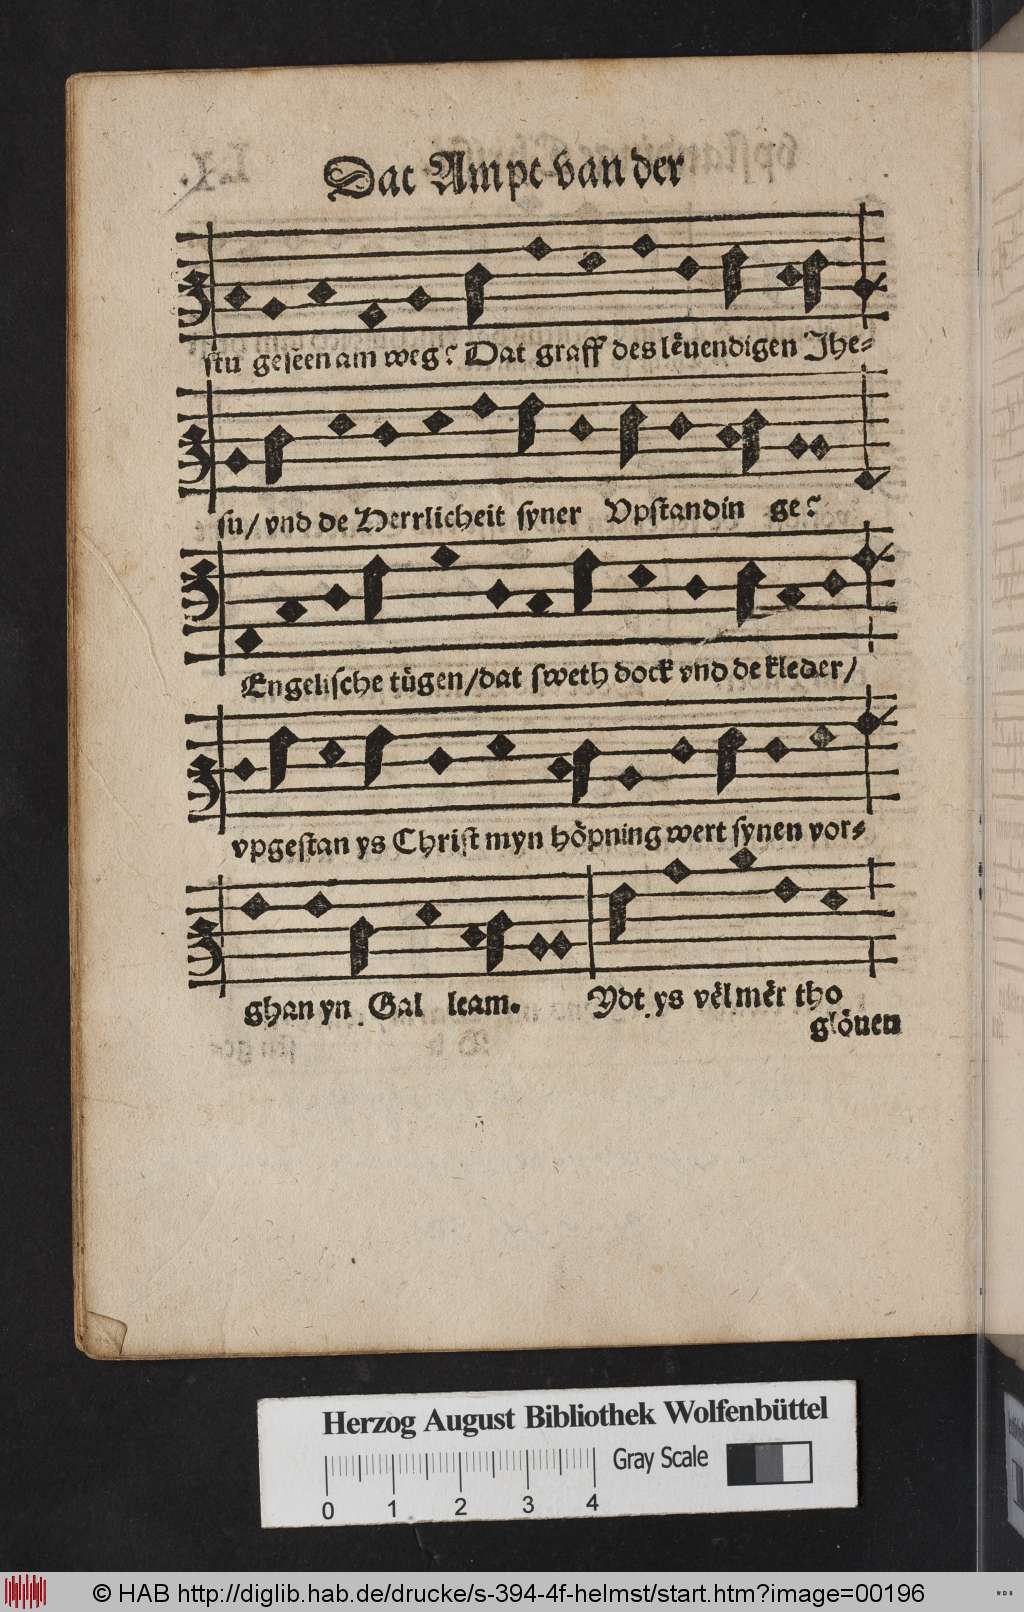 Dat Ampt van der
stu geseen am weg? Dat graff des lëuendigen Jhe-
su/ vnd de Herrlicheit syner Vpstandin ge?
Engelische tügen/dat sweth dock vnd de kleder/
vpgestan ys Christ myn höpning wert synen vor-
ghan yn Gal leam. Ydt ys vël mër tho
glöuen
Herzog August Bibliothek Wolfenbüttel
Gray Scale
0 1 2 3 4
© HAB http://diglib.hab.de/drucke/s-394-4f-helmst/start.htm?image=00196